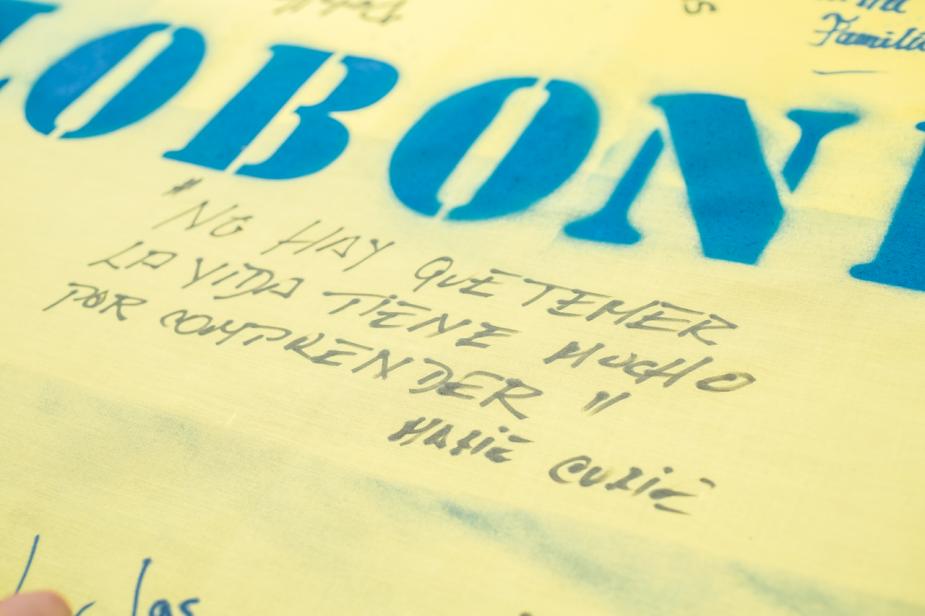 Familia
OBON
"NO HAY QUE TEMER
LA VIDA TIENE MUCHO
POR COMPRENDER"
MARIE CURIE
las